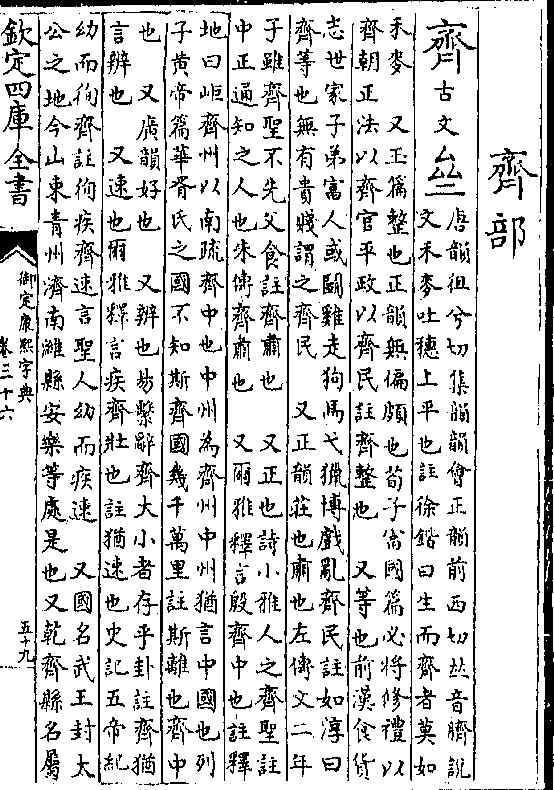 齊部
齊古文亝唐韻徂兮切集韻韻會正韻前西切𠀤音臍說
文禾麥吐穗上平也註徐鍇曰生而齊者莫如
禾麥　又玉篇整也正韻無偏頗也荀子富國篇必將修禮以
齊朝正法以齊官平政以齊民註齊整也　又等也前漢食貨
志世家子弟富人或鬭雞走狗馬弋獵博戲亂齊民註如淳曰
齊等也無有貴賤謂之齊民　又正韻莊也肅也左傳文二年
子雖齊聖不先父食註齊肅也　又正也詩小雅人之齊聖註
中正通知之人也朱傳齊肅也　又爾雅釋言殷齊中也註釋
地曰岠齊州以南疏齊中也中州為齊州中州猶言中國也列
子黃帝篇華胥氏之國不知斯齊國幾千萬里註斯離也齊中
也　又廣韻好也　又辨也易繫辭齊大小者存乎卦註齊猶
言辨也　又速也爾雅釋言疾齊壯也註猶速也史記五帝紀
幼而徇齊註徇疾齊速言聖人幼而疾速　又國名武王封太
公之地今山東青州濟南濰縣安樂等處是也又乾齊縣名屬
欽定四庫全書
御定康熙字典
卷三十六
五十九